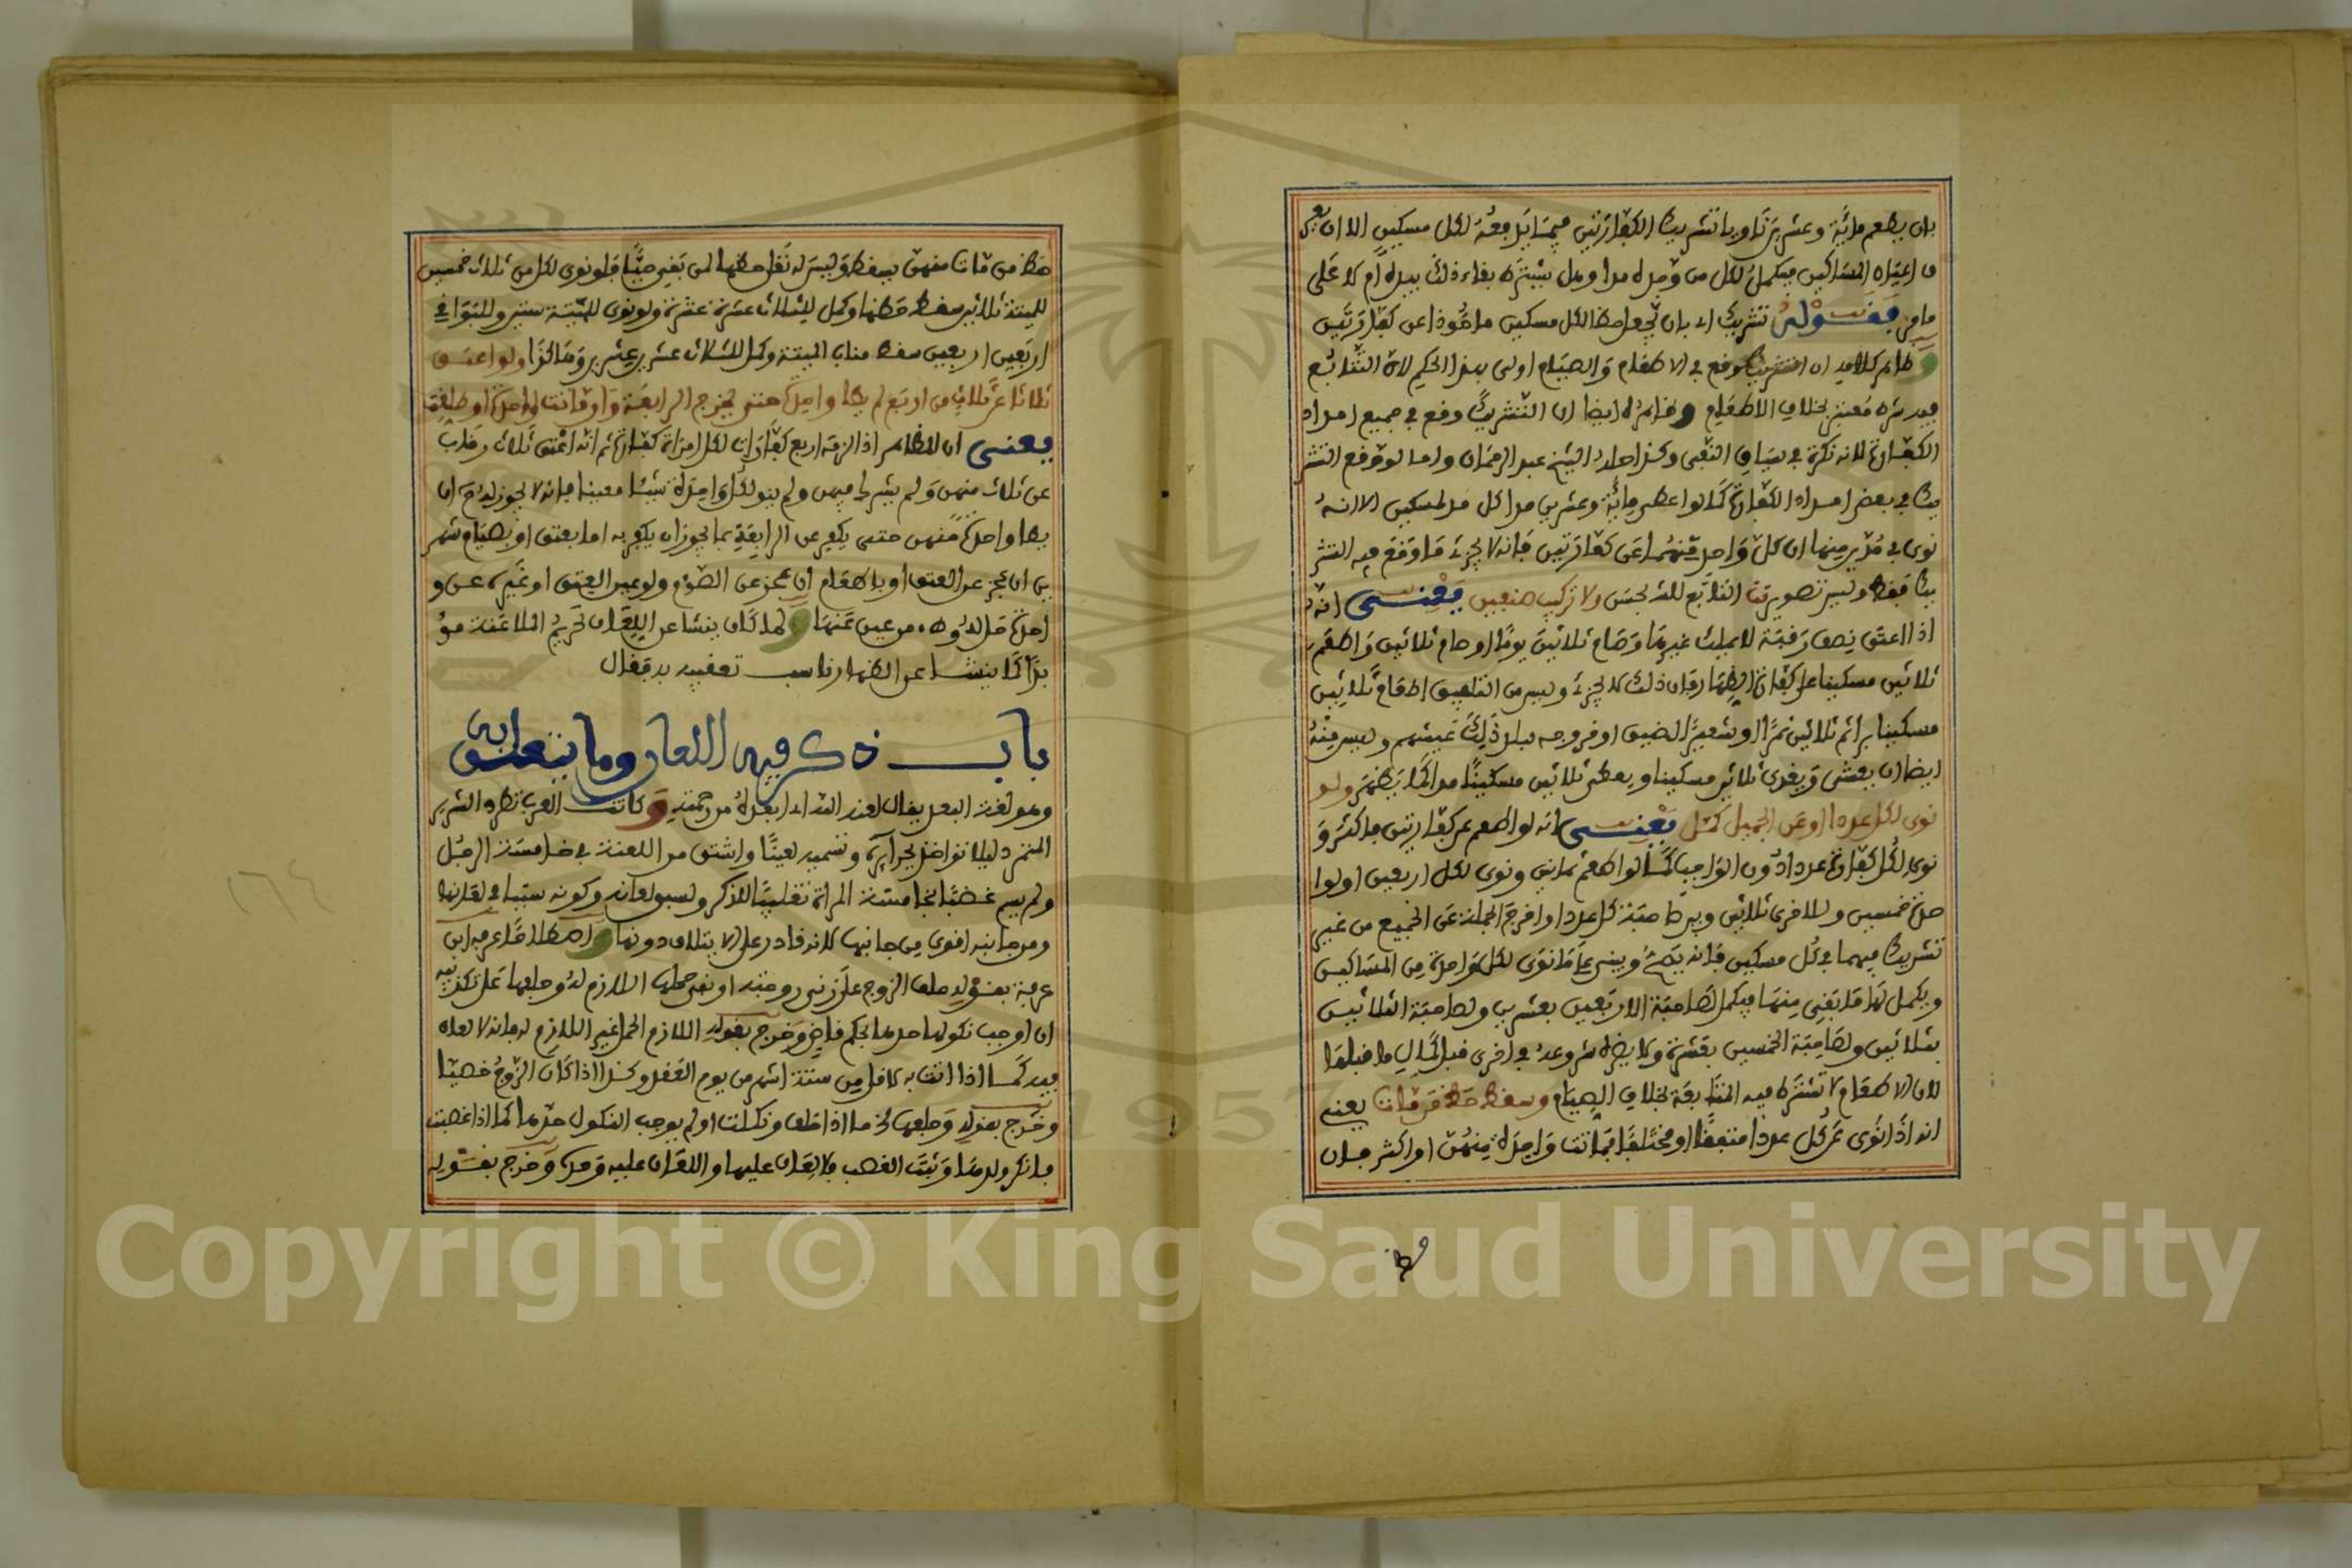 بان يطعم مائة وعشرين ناويا تشريك الكفارتين فيما يدفعه لكل مسكين الا ان يعر
ف اعيان المساكين فيكمل لكل من وجده مدا وهل يشترط بقاء ذلك بيده ام لا على
ما مر فقوله تشريك اي بان يجعل حظ الكل مسكين ماخوذا عن كفارتين
وظاهر كلامه ان التشريك وقع في الاطعام والصيام اولى بهذا الحكم لان التتابع
فيه شرط معتبر بخلاف الاطعام وظاهره ايضا ان التشريك وقع في جميع امداد
الكفارة لانه نكرة في سياق النفي وكذا احاد الشيخ عبد الرحمان واما لو وقع التشر
يك في بعض امداد الكفارة كما لو اعطى مائة وعشرين مدا كل مد لمسكين الا انه
نوى في مدين منها ان كل واحد منهما عن كفارتين فانه لا يجزئ ما وقع فيه التشر
يك فقط وليس تصوير تت التابع للشحسن ولا تركيب صنفين يعني انه
اذا اعتق نصف رقبة لا يملك غيرها وصام ثلاثين يوما او صام ثلاثين واطعم
ثلاثين مسكينا عن كفارة الظهار فان ذلك لا يجزئ وليس من التلفيق اطعام ثلاثين
مسكينا برا ثم ثلاثين تمرا او شعيرا لضيق او خروجه لبلد ذلك عيشهم وليس منه
ايضا ان يعشى ويغدى ثلاثين مسكينا ويعطى ثلاثين مسكينا مدا كما يظهر ولو
نوى لكل عددا او عن الجميع كمل يعني انه لو اطعم عن كفارتين فاكثر و
نوى لكل كفارة عددا دون الواجب كما لو اطعم ثمانين ونوى لكل اربعين او لوا
حدة خمسين وللاخرى ثلاثين وبه صاحبة كل عدد او اخرج الجملة عن الجميع من غير
تشريك فيهما في كل مسكين فانه يصح ويبنى على ما نوى لكل واحدة من المساكين
ويكمل لها ما بقي منها فيكمل لصاحبة الاربعين بعشرين ولصاحبة الثلاثين
بثلاثين ولصاحبة الخمسين بعشرة ولا يضره شروعه في اخرى قبل اكمال ما قبلها
لان الاطعام لا تشترط فيه المتابعة بخلاف الصيام وسقط حظ من ماتت يعني
انه اذا نوى عن كل عددا متفقا او مختلفا فماتت واحدة منهن او اكثر فان
حظ
حظ من ماتت منهن يسقط وليس له نقل حظها لمن بقي حيا فلو نوى لكل من ثلاث خمسين
للميتة ثلاثين سقط حظها وكمل للثلاث عشرة عشرة ولو نوى للميتة ستين وللبواقي
اربعين اربعين سقط مناب الميتة وكمل للثلاث عشرين عشرين وهكذا ولو اعتق
ثلاثا عن ثلاث من اربع لم يطا واحدة حتى يخرج الرابعة وان ماتت واحدة او طلقت
يعني ان المظاهر اذا لزمه اربع كفارات لكل امراة كفارة ثم انه اعتق ثلاث رقاب
عن ثلاث منهن ولم يشرك فيهن ولم ينو لكل واحدة شيئا معينا فانه لا يجوز له ح ان
يطا واحدة منهن حتى يكفر عن الرابعة بما يجوز ان يكفر به اما بعتق او بصيام شهر
ين ان عجز عن العتق او باطعام ان عجز عن الصوم ولو عبر بالعتق او غيره عن و
احدة حل له وطء من عين عنها ولما كان ينشا عن اللعان تحريم الملاعنة مؤ
بدا كما ينشا عن الظهار ناسب تعقيبه به فقال
باب ذكر فيه اللعان وما يتعلق به
وهو لغة البعد يقال لعنه الله اي ابعده من رحمته وكانت العرب تطرد الشرير
المتمرد ليلا تواخذ بجرايره وتسميه لعينا واشتق من اللعنة في خامسة الرجل
ولم يسم غضبا بخامسة المراة تغليبا للذكر ولسبق لعانه وكونه سببا في لعانها
ومن جانبه اقوى من جانبها لانه قادر على الابتلاف دونها واصطلاحا عرفه ابن
عرفة بقوله حلف الزوج على زنى زوجته او نفي حملها اللازم له وحلفها على تكذيبه
ان اوجب نكولها حدها بحكم قاض وخرج بقوله اللازم الحمل غير اللازم له فانه لا لعان
فيه كما اذا اتت به لاقل من ستة اشهر من يوم العقد وكذا اذا كان الزوج خصيا
وخرج بقوله وحلفها الخ ما اذا حلف ونكلت او لم يوجب النكول حدها كما اذا غصبت
فانكر ولدها وثبت الغصب فلا لعان عليها واللعان عليه وحده وخرج بقوله
١٦٤
Copyright © King Saud University
1957